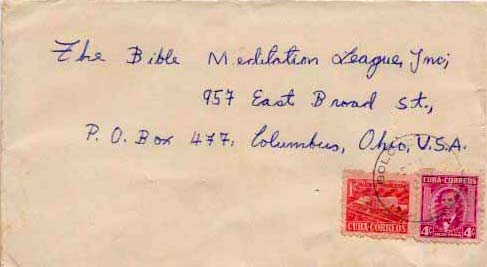 The Bible Meditation League, Inc;
957 East Broad St.,
P.O. Box 477. Columbus, Ohio, U.S.A.
1
CUBA-CORREOS
CUBA-CORREOS
4¢ 4¢